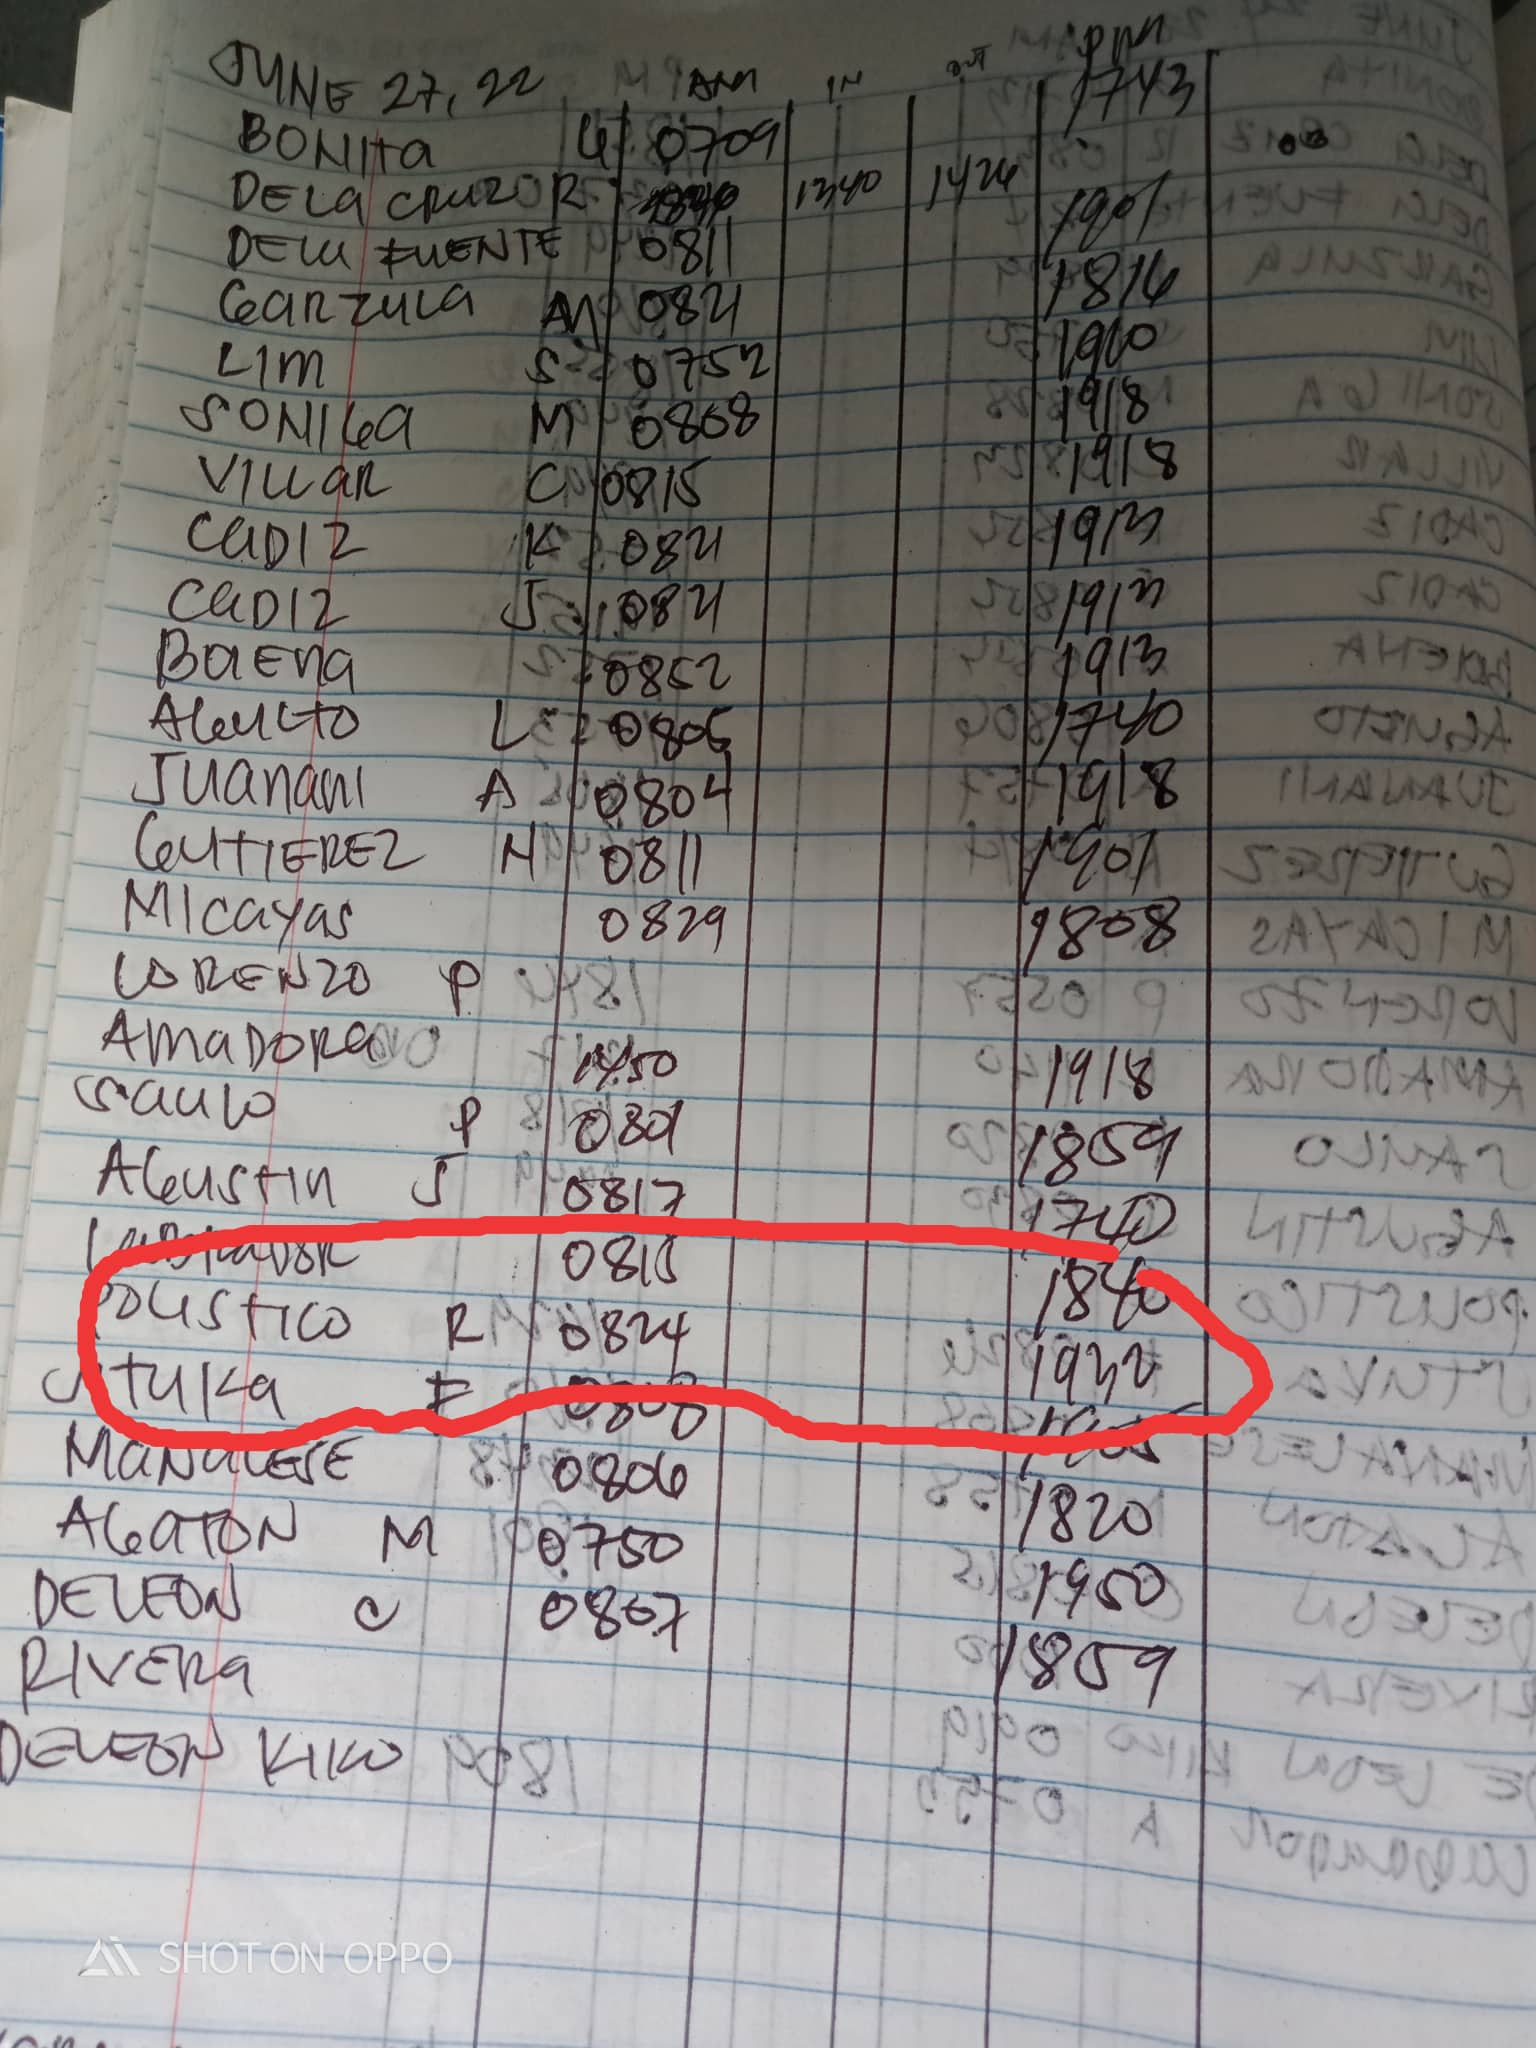 JUNE 27, 22 AM IN OUT PM
BONITA G 0709 1743
DELA CRUZ R 1340 1426
DELA FUENTE 0811 1901
GARZULA AM 0821 1816
LIM S 0752 1910
SONIGA M 0808 1918
VILLAR C 0815 1918
CADIZ K 0821 1913
CADIZ J 0821 1913
BAENA 0852 1913
AGUETO L 0805 1740
JUANANI A 0804 1918
GUTIEREZ N 0811 1901
MICAYAS 0829 1808
LORENZO P
AMADORA 1450 1918
SAULO P 0801 1859
AGUSTIN J 0817 1740
LABRADOR 0815 1840
POLISTICO R 0824 1932
STUKA F 0808 1905
MANALESE 0806 1820
AGATON M 0750 1950
DELEON C 0807 1859
RIVERA
DELEON KIKO
SHOT ON OPPO